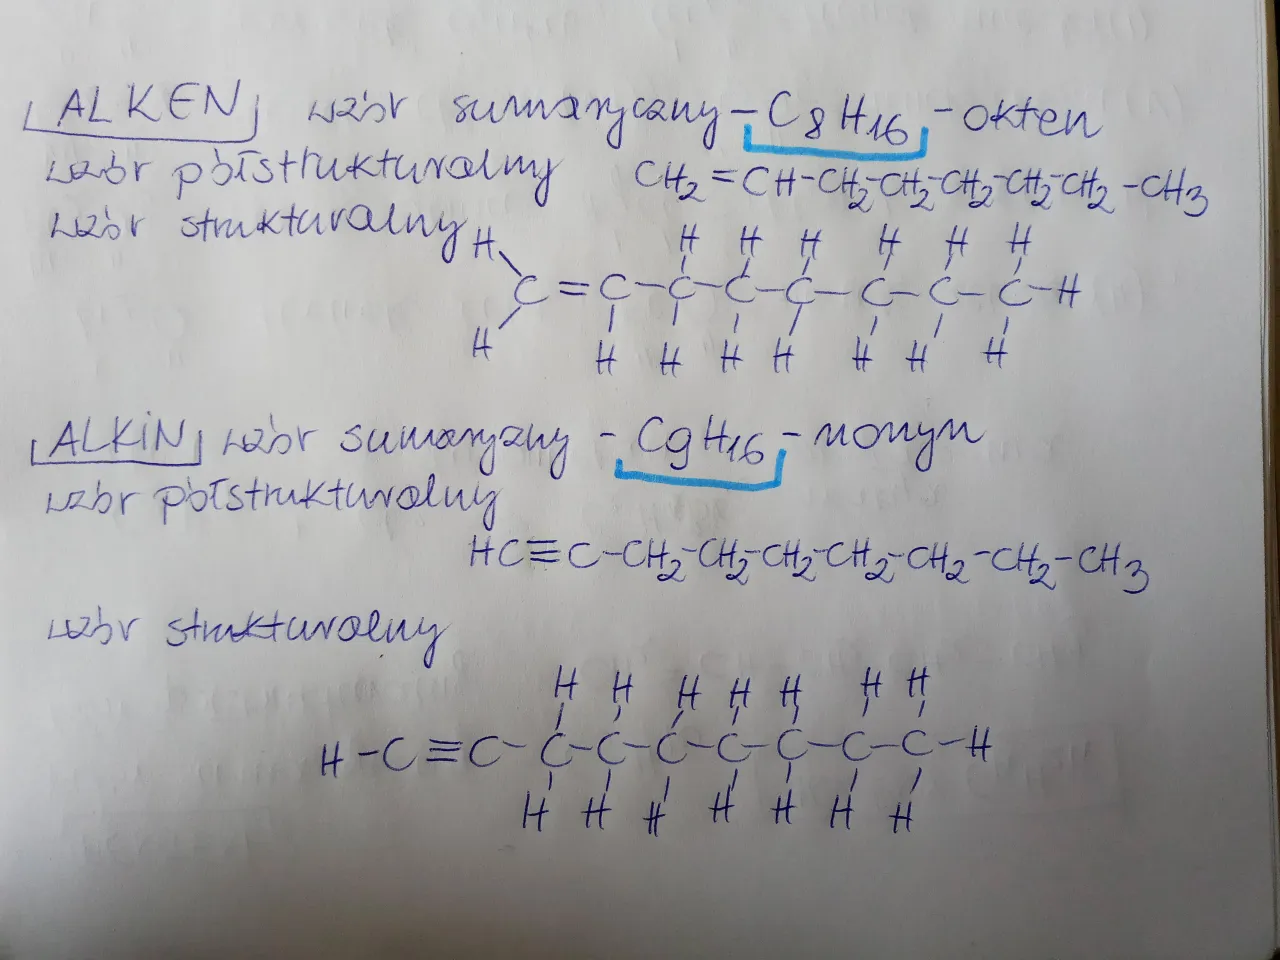 ALKEN wzór sumaryczny - C8H16 - okten
wzór półstrukturalny CH2=CH-CH2-CH2-CH2-CH2-CH2-CH3
wzór strukturalny
H H H H H H H
C=C-C-C-C-C-C-C-H
H H H H H H H H
ALKiN wzór sumaryczny - C9H16 - nonyn
wzór półstrukturalny
HC≡C-CH2-CH2-CH2-CH2-CH2-CH2-CH3
wzór strukturalny
H H H H H H H
H-C≡C-C-C-C-C-C-C-C-H
H H H H H H H